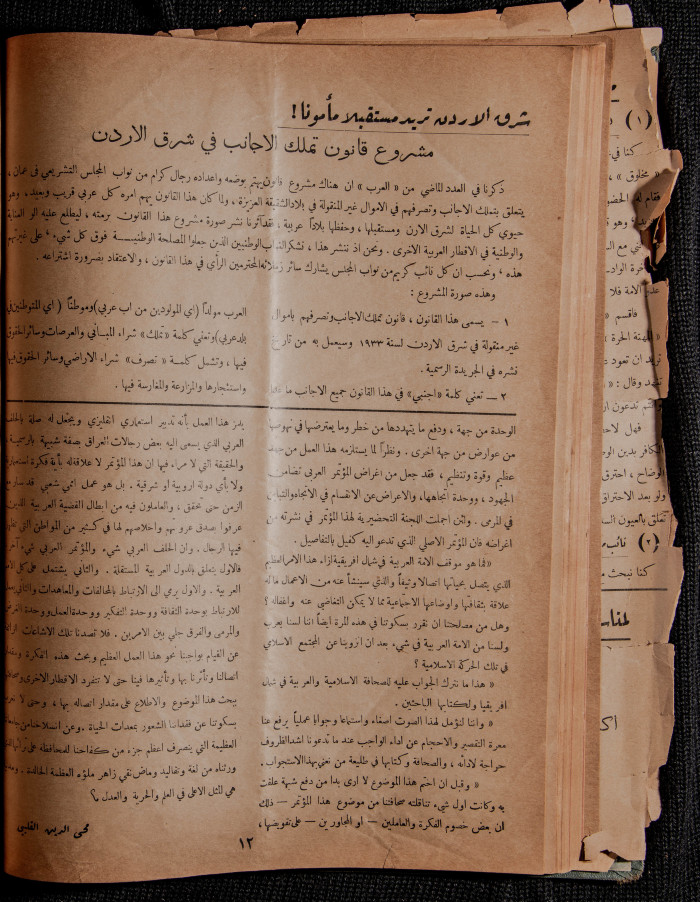 شرق الاردن تريد مستقبلا مأمونا!
مشروع قانون تملك الاجانب في شرق الاردن
ذكرنا في العدد الماضي من « العرب » ان هناك مشروع قانون يهتم بوضعه واعداده رجال كرام من نواب المجلس التشريعي في عمان ،
يتعلق بتملك الاجانب وتصرفهم في الاموال غير المنقولة في بلادنا الشقيقة العزيزة ، ولما كان هذا القانون يهم امره كل عربي قريب وبعيد ، وهو
حيوي كل الحياة لشرق الاردن ومستقبلها ، وحفظها بلاداً عربية ، فقد آثرنا نشر صورة مشروع هذا القانون برمته ، ليطلع عليه الو العناية
والوطنية في الاقطار العربية الاخرى . ونحن اذ ننشر هذا ، نشكر النواب الوطنيين الذين جعلوا المصلحة الوطنيـــة فوق كل شيء ، على غيرتهم
هذه ، ونحسب ان كل نائب كريم من نواب المجلس يشارك سائر زملائه المحترمين الرأي في هذا القانون ، والاعتقاد بضرورة اشتراعه .
وهذه صورة المشروع :
١ – يسمى هذا القانون ، قانون تملك الاجانب وتصرفهم باموال
غير منقولة في شرق الاردن لسنة ١٩٣٣ وسيعمل به من تاريخ
نشره في الجريدة الرسمية .
٢ – تعني كلمة « اجنبي » في هذا القانون جميع الاجانب ما عدا
العرب مولداً ( اي المولودين من اب عربي ) وموطناً ( اي المتوطنين في
بلد عربي ) وتعني كلمة « تملك » شراء المباني والعرصات وسائر الحقوق
فيها ، وتشمل كلمـــة « تصرف » شراء الاراضي وسائر الحقوق فيها
واستئجارها والمزارعة والمغارسة فيها .
الوحدة من جهة ، ودفع ما يتهددها من خطر وما يعترضها في نهوضها
من عوارض من جهة اخرى . ونظراً لما يستلزمه هذا العمل من جهد
عظيم وقوة وتنظيم ، فقد جعل من اغراض المؤتمر العربي تضامن
الجهود ، ووحدة اتجاهها ، والاعراض عن الانقسام في الاتجاه والتباين
في المرمى . ولئن اجملت اللجنة التحضيرية لهذا المؤتمر في نشرته من
اغراضه فان المؤتمر الاصلي الذي تدعو اليه كفيل بالتفاصيل .
« فما هو موقف الامة العربية في شمال افريقية ازاء هذا الامر العظيم
الذي يتصل بحياتها اتصالا وثيقاً والذي سينشأ عنه من الاعمال ما له
علاقة بثقافتها واوضاعها الاجتماعية مما لا يمكن التغاضي عنه واغفاله ؟
وهل من مصلحتنا ان نقرر بسكوتنا في هذه المرة ايضاً اننا لسنا بعرب
ولسنا من الامة العربية في شيء بعد ان انزوينا عن المجتمع الاسلامي
في تلك الحركة الاسلامية ؟
« هذا ما نترك الجواب عليه للصحافة الاسلامية والعربية في شمال
افريقيا ولكتابها الباحثين .
« واننا لنؤمل لهذا الصوت اصغاء واستماعا وجوابا عملياً يرفع عنا
معرة التقصير والاحجام عن اداء الواجب عند ما تدعونا اشد الظروف
حراجة لادائه ، والصحافة وكتابها في طليعة من نعني بهذا الاستجواب .
« وقبل ان اختم هذا الموضوع لا ارى بدا من دفع شبهة علقت
به وكانت اول شيء تناقلته صحافتنا من موضوع هذا المؤتمر — ذلك
ان بعض خصوم الفكرة والعاملين — او المجاورين — على تقويضها ،
يدز هذا العمل بأنه تدبير استعماري انقليزي ويجعل له صلة بالحلف
العربي الذي يسعى اليه بعض رجالات العراق بصفة شبيهة بالرسمية .
والحقيقة التي لا مراء فيها ان هذا المؤتمر لا علاقة له بأية فكرة استعمارية
ولا بأي دولة اروبية او شرقية . بل هو عمل شعبي قد سار مع
الزمن حتى تحقق ، والعاملون فيه من ابطال القضية العربية الذين
عرفوا بصدق عروبتهم واخلاصهم لها في كثير من المواطن التي
فيها الرجال . وان الحلف العربي شيء والمؤتمر العربي شيء آخر
فالاول يتعلق بالدول العربية المستقلة . والثاني يشتمل على كل
العربية . والاول يرمي الى الارتباط بالمحالفات والمعاهدات والثاني
للارتباط بوحدة الثقافة ووحدة التفكير ووحدة العمل ووحدة الغرض
والمرمى والفرق جلي بين الامرين . فلا تصدنا تلك الاشاعات
عن القيام بواجبنا نحو هذا العمل العظيم وبحث هذه الفكرة
اتصالنا وتأثرنا بها وتأثيرها فينا حتى لا تتفرد الاقطار الاخرى
ببحث هذا الموضوع والاطلاع على مقدار اتصاله بها ، وحتى لا
بسكوتنا عن فقداننا الشعور بمعدات الحياة . وعن انسلاخنا من
العظيمة التي ينصرف اعظم جزء من كفاحنا للمحافظة على
ورثناه من لغة وتقاليد وماض نقي زاهر ملؤه العظمة الخالدة .
هي المثل الاعلى في العلم والحرية والعدل ما؟
محي الدين القليبي
١٢
(١)
كنا في
« مخلوق » ،
فاقسم «
« المهنة الحرة »
تريد ان تعود
وقال : «
فهل لا
الكافر بدين
ولو بعد الاحتراق
تتعلق بالعيون
(٢) نائب
كنا نبحث